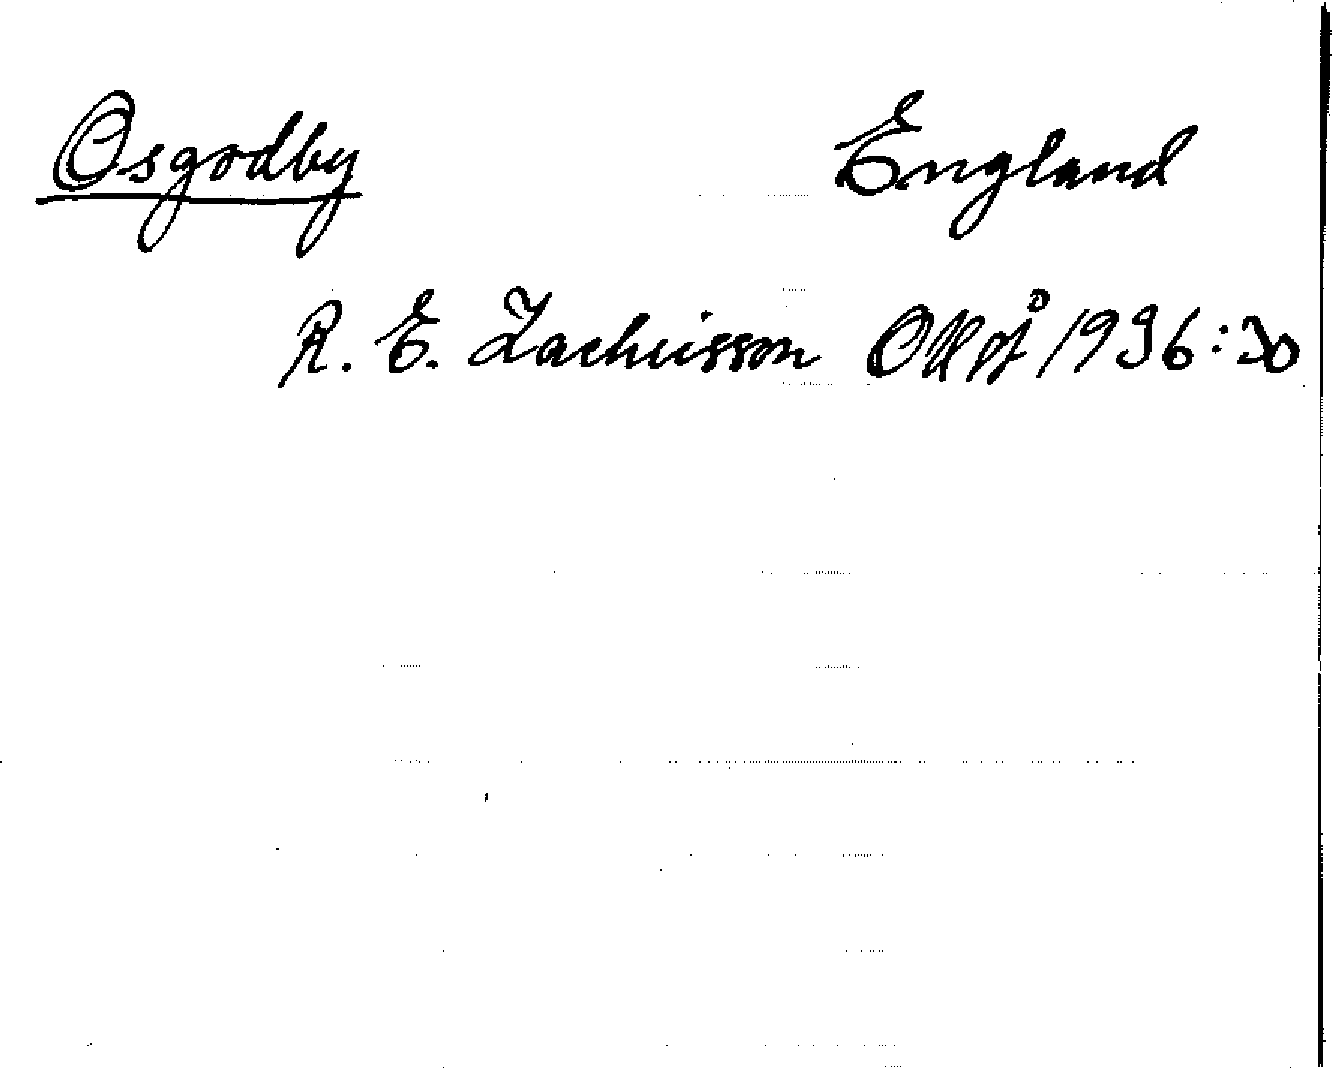 Osgodby England
R. E. Zachrisson 1936:30